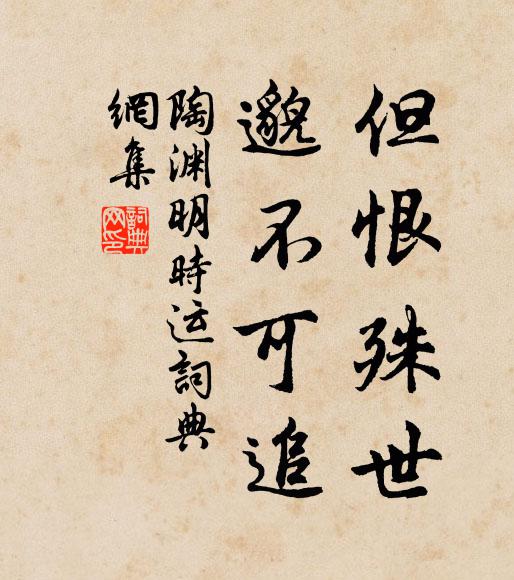 但恨殊世
邈不可追
陶渊明時运詞典
網集
詞典
网印